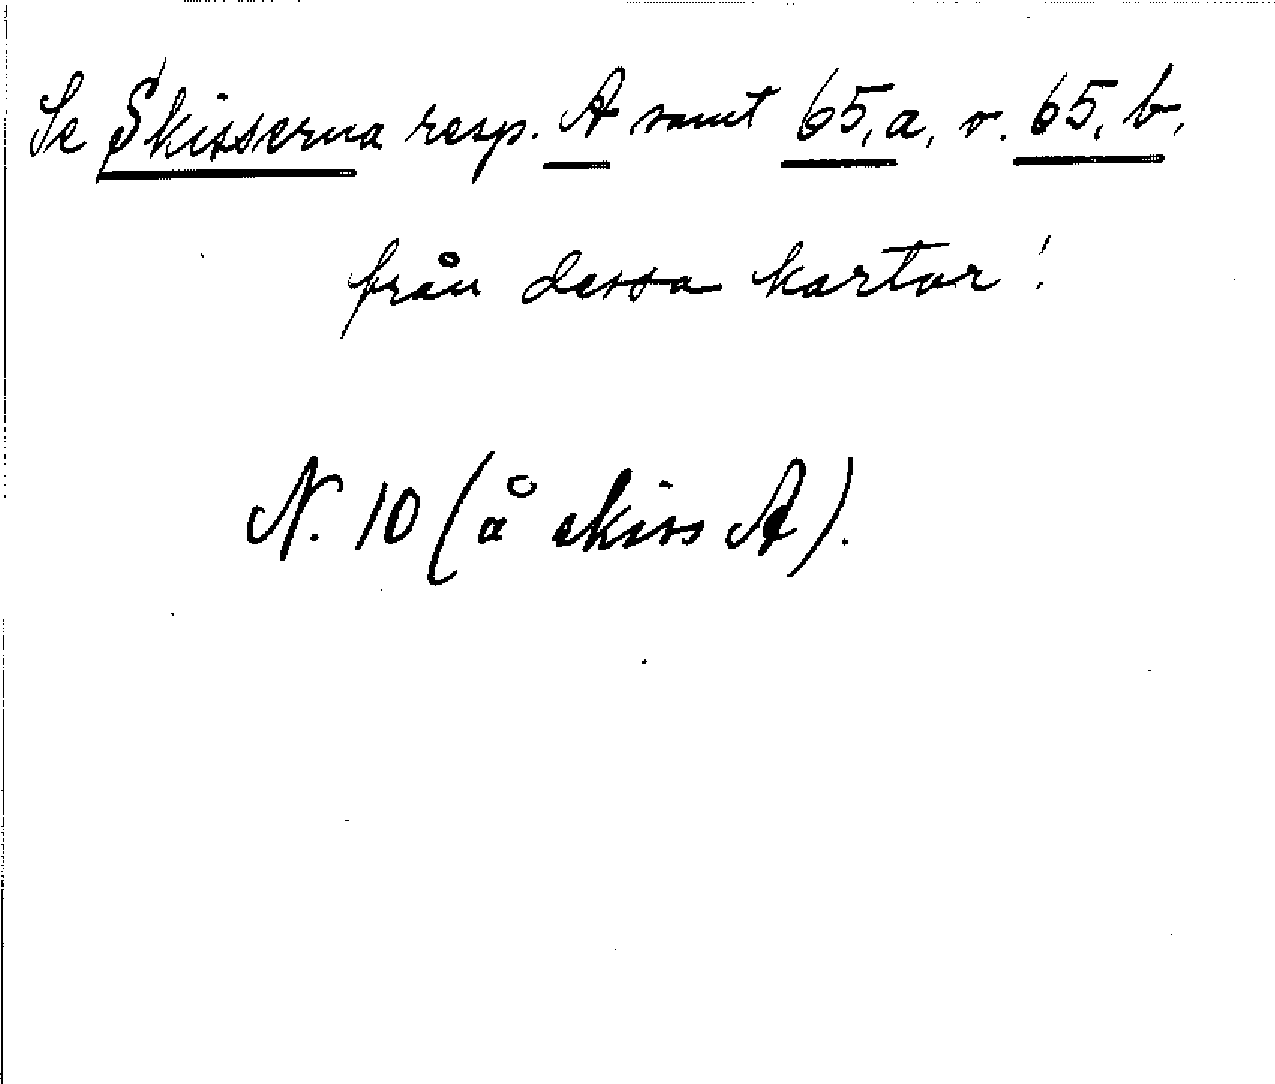 Se Skisserna resp. A samt 65,a, o. 65, b,
från dessa kartor!
N. 10 (å skiss A).